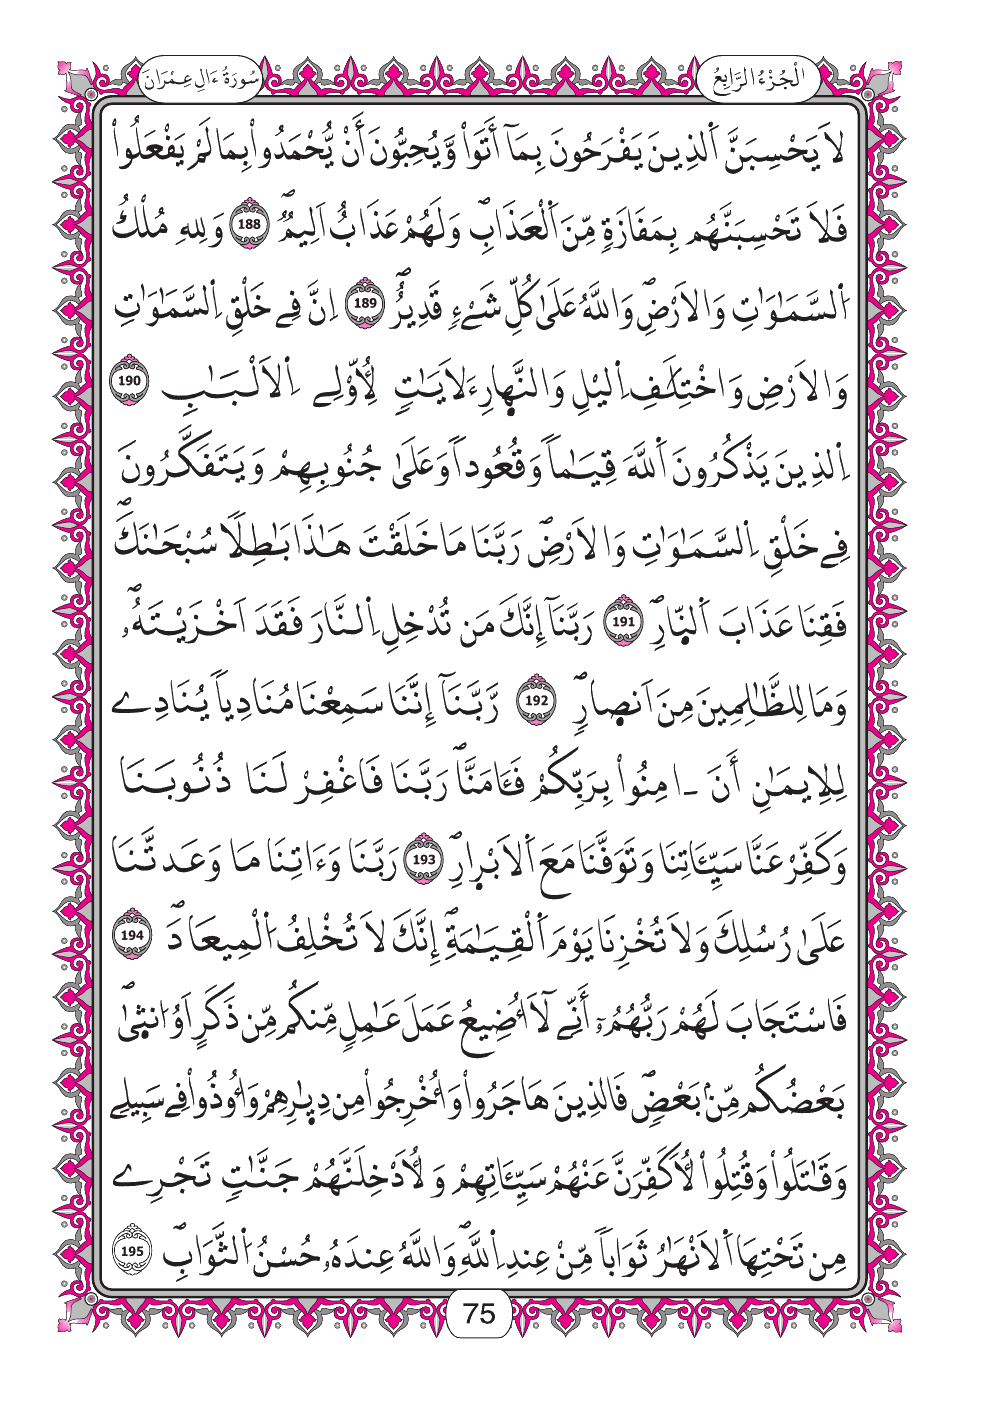 الْجُزْءُ الرَّابِعُ
سُورَةُ ءَالِ عِمْرَانَ
لَا يَحْسِبَنَّ اَ۬لذِينَ يَفْرَحُونَ بِمَآ أَتَواْ وَّيُحِبُّونَ أَنْ يُّحْمَدُواْ بِمَا لَمْ يَفْعَلُواْ
فَلَا تَحْسِبَنَّهُم بِمَفَازَةٖ مِّنَ اَ۬لْعَذَابِۖ وَلَهُمْ عَذَابٌ اَلِيمٞۖ 188 وَلِلهِ مُلْكُ
اُ۬لسَّمَٰوَٰتِ وَالَارْضِۖ وَاللَّهُ عَلَىٰ كُلِّ شَےْءٖ قَدِيرٌۖ 189 اِنَّ فِے خَلْقِ اِ۬لسَّمَٰوَٰتِ
وَالَارْضِ وَاخْتِلَٰفِ اِ۬ليْلِ وَالنَّهارِ ءَلَايَٰتٖ لِّأُوْلِے اِ۬لَالْبَٰبِ 190
اِ۬لذِينَ يَذْكُرُونَ اَ۬للَّهَ قِيَٰماٗ وَقُعُوداٗ وَعَلَىٰ جُنُوبِهِمْ وَيَتَفَكَّرُونَ
فِے خَلْقِ اِ۬لسَّمَٰوَٰتِ وَالَارْضِۖ رَبَّنَا مَا خَلَقْتَ هَٰذَا بَٰطِلاٗ سُبْحَٰنَكَۖ
فَقِنَا عَذَابَ اَ۬لنّ۪ارِۖ 191 رَبَّنَآ إِنَّكَ مَن تُدْخِلِ اِ۬لنَّارَ فَقَدَ اَخْزَيْتَهُۥۖ
وَمَا لِلظَّٰلِمِينَ مِنَ اَنص۪ارٖۖ 192 رَّبَّنَآ إِنَّنَا سَمِعْنَا مُنَادِياٗ يُنَادِے
لِلِايمَٰنِ أَنَ ـ اٰمِنُواْ بِرَبِّكُمْ فَـَٔامَنَّاۖ رَبَّنَا فَاغْفِرْ لَنَا ذُنُوبَنَا
وَكَفِّرْ عَنَّا سَيِّـَٔاتِنَا وَتَوَفَّنَا مَعَ اَ۬لَابْر۪ارِۖ 193 رَبَّنَا وَءَاتِنَا مَا وَعَدتَّنَا
عَلَىٰ رُسُلِكَ وَلَا تُخْزِنَا يَوْمَ اَ۬لْقِيَٰمَةِۖ إِنَّكَ لَا تُخْلِفُ اُ۬لْمِيعَادَۖ 194
فَاسْتَجَابَ لَهُمْ رَبُّهُمُۥٓ أَنِّے لَآ أُضِيعُ عَمَلَ عَٰمِلٖ مِّنكُم مِّن ذَكَرٍ اَوُ ا۟نث۪ىٰۖ
بَعْضُكُم مِّنۢ بَعْضٖۖ فَالذِينَ هَاجَرُواْ وَأُخْرِجُواْ مِن دِيٰ۪رِهِمْ وَأُوذُواْ فِے سَبِيلِے
وَقَٰتَلُواْ وَقُتِلُواْ لَأُكَفِّرَنَّ عَنْهُمْ سَيِّـَٔاتِهِمْ وَلَأُدْخِلَنَّهُمْ جَنَّٰتٖ تَجْرِے
مِن تَحْتِهَا اَ۬لَانْهَٰرُ ثَوَاباٗ مِّنْ عِندِ اِ۬للَّهِۖ وَاللَّهُ عِندَهُۥ حُسْنُ اُ۬لثَّوَابِۖ 195
75